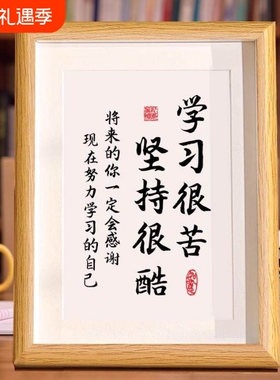 礼遇季
学习很苦
坚持很酷
将来的你一定会感谢
现在努力学习的自己